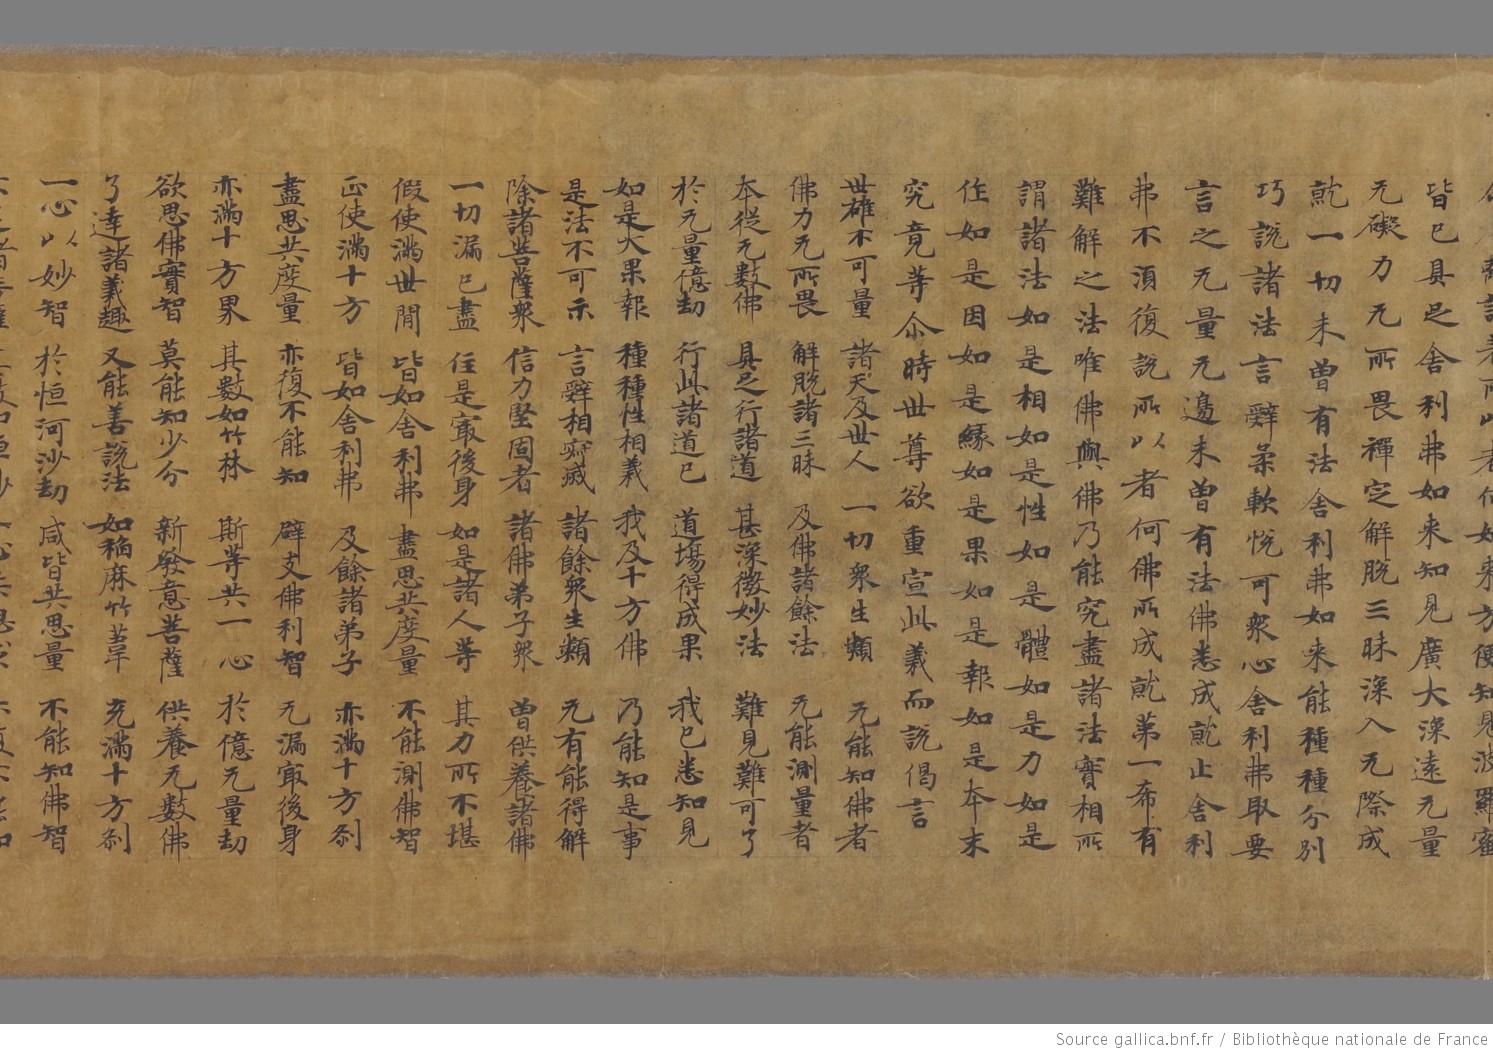 皆已具足舍利弗如来知見廣大深遠无量
无礙力无所畏禪定解脫三昧深入无際成
就一切未曽有法舍利弗如来能種種分別
巧說諸法言辭柔軟悅可衆心舍利弗取要
言之无量无邊未曽有法佛悉成就止舍利
弗不湏復說所以者何佛所成就弟一希有
難解之法唯佛與佛乃能究盡諸法實相所
謂諸法如是相如是性如是體如是力如是
作如是因如是緣如是果如是報如是夲末
究竟等尒時世尊欲重宣此義而說偈言
世雄不可量 諸天及世人 一切衆生類 无能知佛者
佛力无所畏 解脫諸三昧 及佛諸餘法 无能測量者
夲従无數佛 具足行諸道 甚深微妙法 難見難可了
於无量億劫 行此諸道已 道場得成果 我已悉知見
如是大果報 種種性相義 我及十方佛 乃能知是事
是法不可示 言辭相寂滅 諸餘衆生類 无有能得解
除諸菩薩衆 信力堅固者 諸佛弟子衆 曽供養諸佛
一切漏已盡 住是㝡後身 如是諸人等 其力所不堪
假使滿世間 皆如舍利弗 盡思共度量 不能測佛智
正使滿十方 皆如舍利弗 及餘諸弟子 亦滿十方刹
盡思共度量 亦復不能知 辟支佛利智 无漏㝡後身
亦滿十方界 其數如竹林 斯等共一心 於億无量劫
欲思佛實智 莫能知少分 新發意菩薩 供養无數佛
了達諸義趣 又能善說法 如稲麻竹葦 充滿十方刹
一心以妙智 於恒河沙劫 咸皆共思量 不能知佛智
Source gallica.bnf.fr / Bibliothèque nationale de France